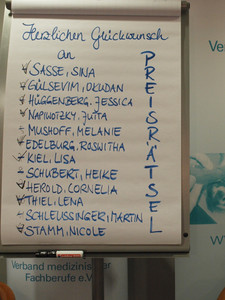 Herzlichen Glückwunsch
an
SASSE, SINA
GÜLSEVIM, OKUDAN
HÜGGENBERG, JESSICA
NAPIWOTZKY, JUTTA
MUSHOFF, MELANIE
EDELBURG, ROSWITHA
KIEL, LISA
SCHUBERT, HEIKE
HEROLD, CORNELIA
THIEL, LENA
SCHLEUSSINGER, MARTIN
STAMM, NICOLE
PREISRÄTSEL
Verband medizinischer
Fachberufe e.V.
Ve
W